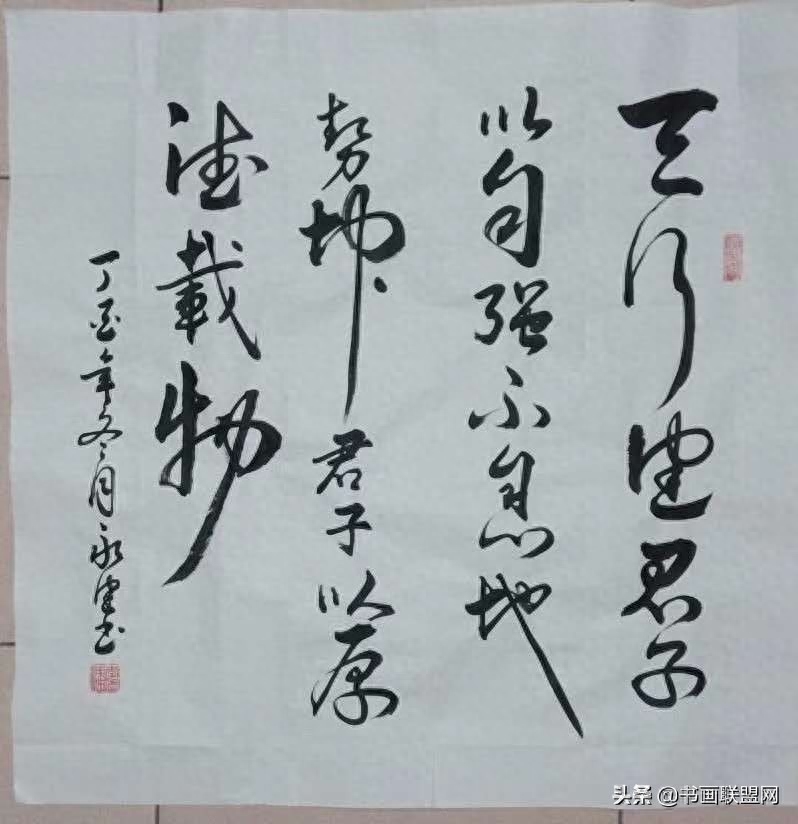 天行健君子
以自强不息地
勢坤君子以厚
德載物
丁酉年冬月永健书
头条 @书画联盟网